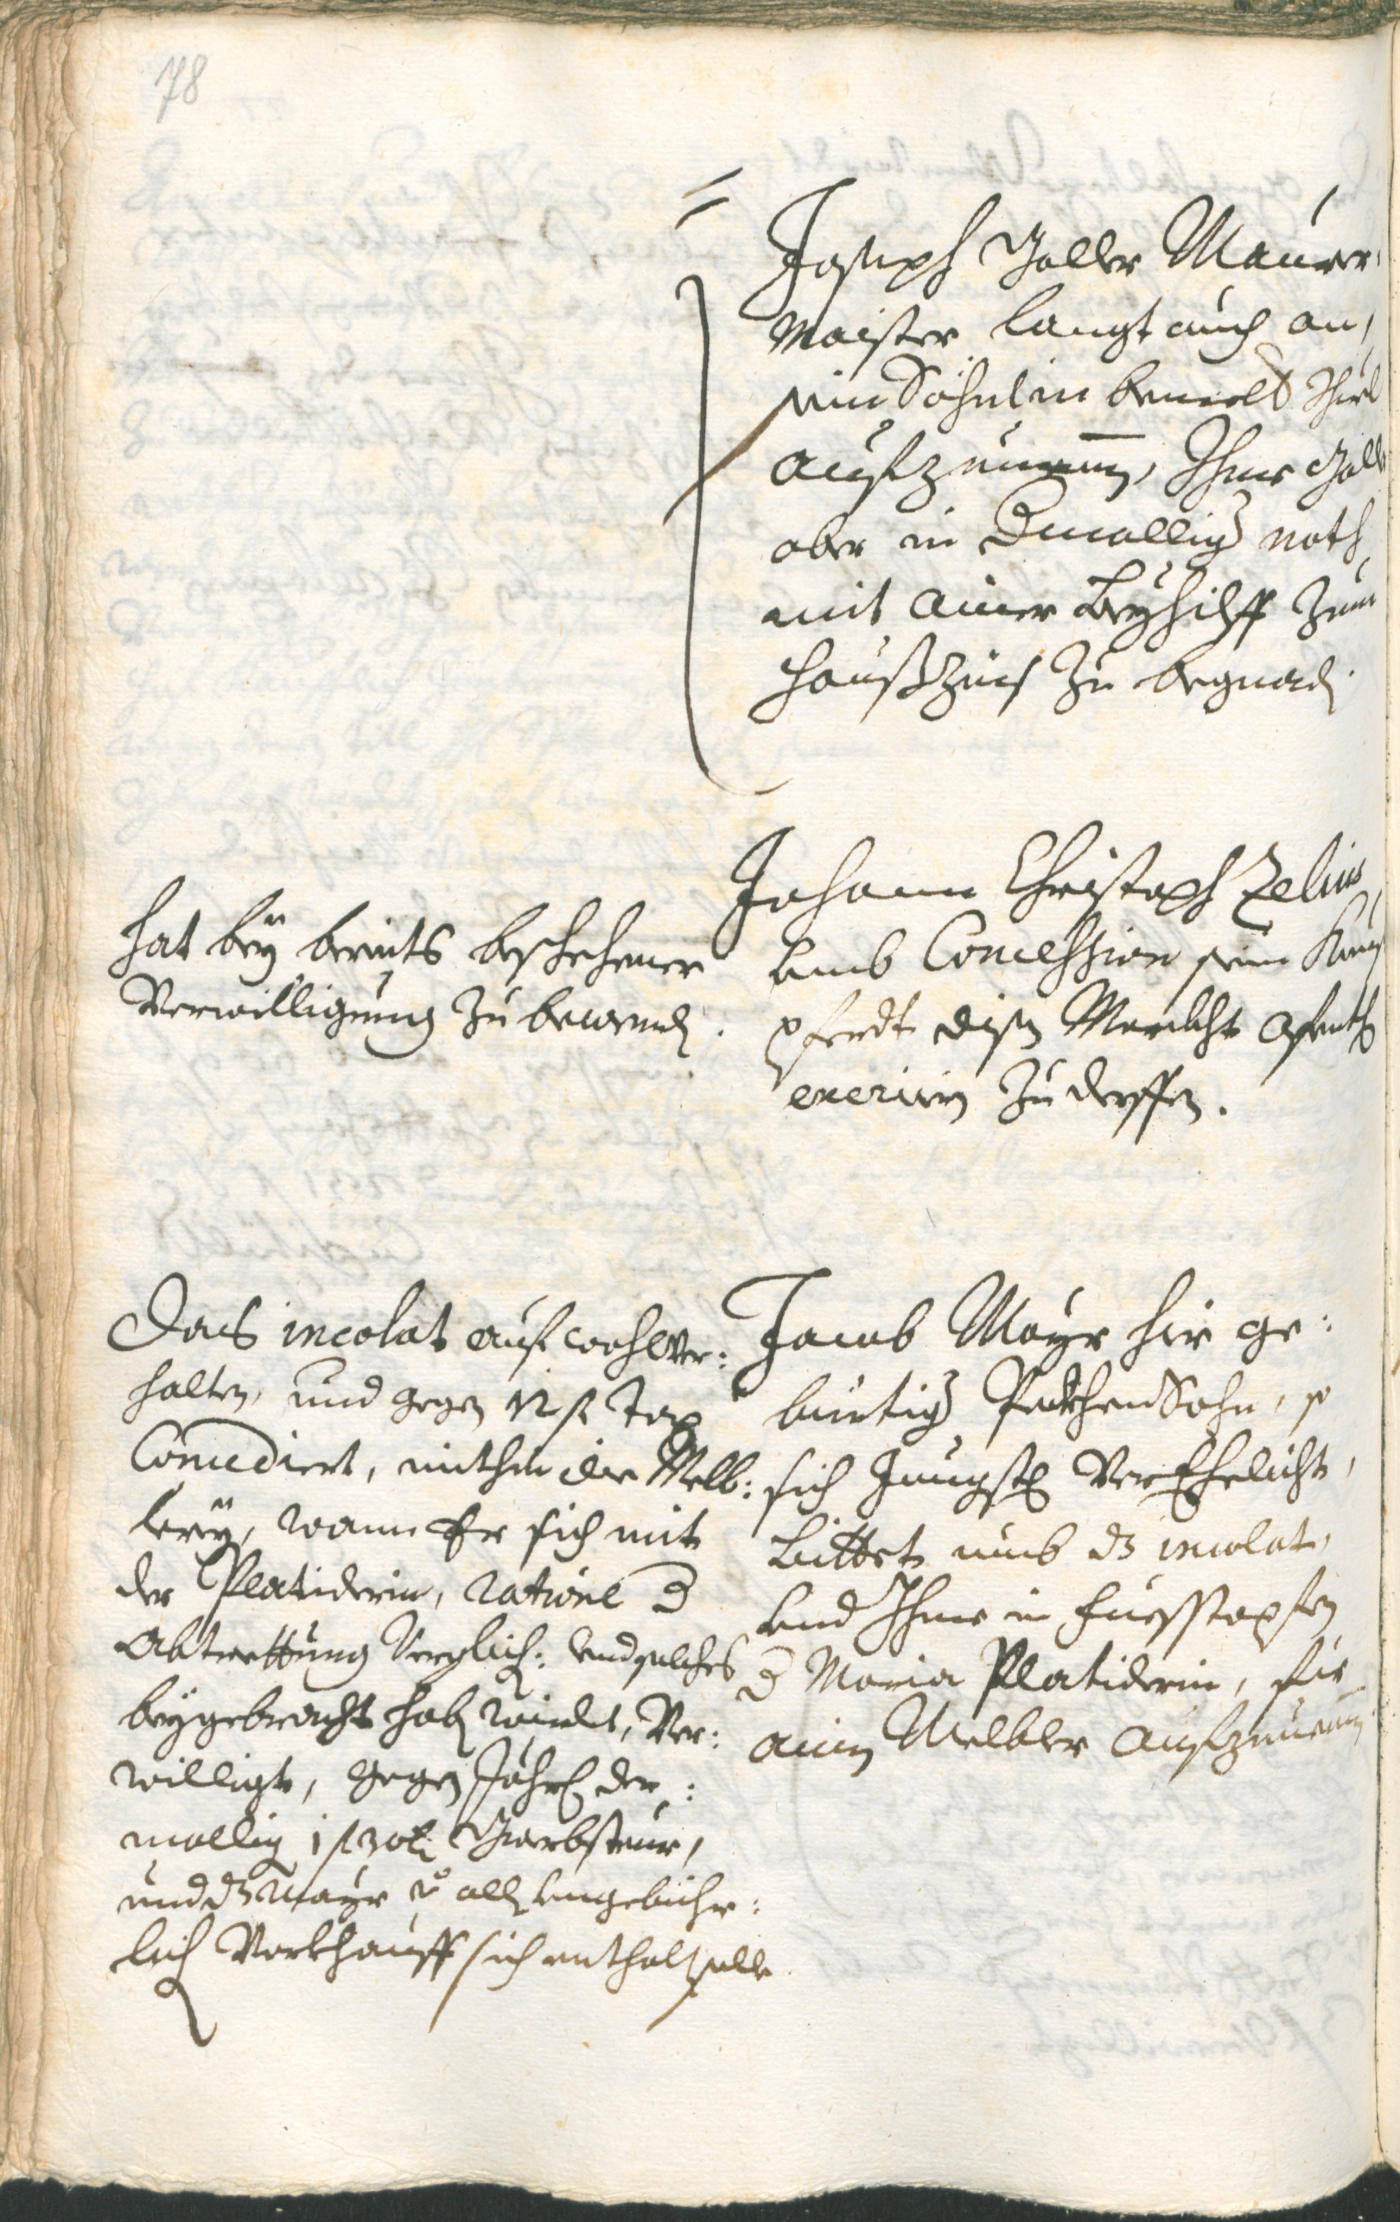 78
Joseph Galler Maurer
Maister langt auch an,
sein Söhnl in bemelt
aufzunemen, Ihme Galler
aber in dermallig noth
mit ainer Beyhilff zum
Haußzinß zu begnad.
Johann Christoph Zelius
umb Concession sein Kunst
pferdt disen Markht
exerciern zu derffen.
hat bey bereits beschehener
Verwilligung zu bewend.
Jacob Mayr hir ge:
bürtig Pekhen Sohn, so
sich Jüngst VerEhelicht,
bittet umb dz incolat,
und Ihme in fuesstapfen
d Maria Platiderin, für
ainen Melbler aufzunemen
Das incolat auf wohlver:
halten, und gegen 12 f Tax
Concediert, mithin die Melb:
lerey, wann Er sich mit
der Platiderin, ratione d
Abtrettung Verglich: und solches
beygebracht hab wirdet, Ver:
willigt, gegen Jährl der:
mallig 1 f 30 x Gwerbsteur,
und dz Mayr all ungebühr:
lich Vorkhauff sich enthalt solle